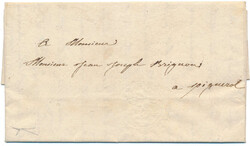 A Monsieur
Monsieur Jean Joseph Brignone
a Pignerol